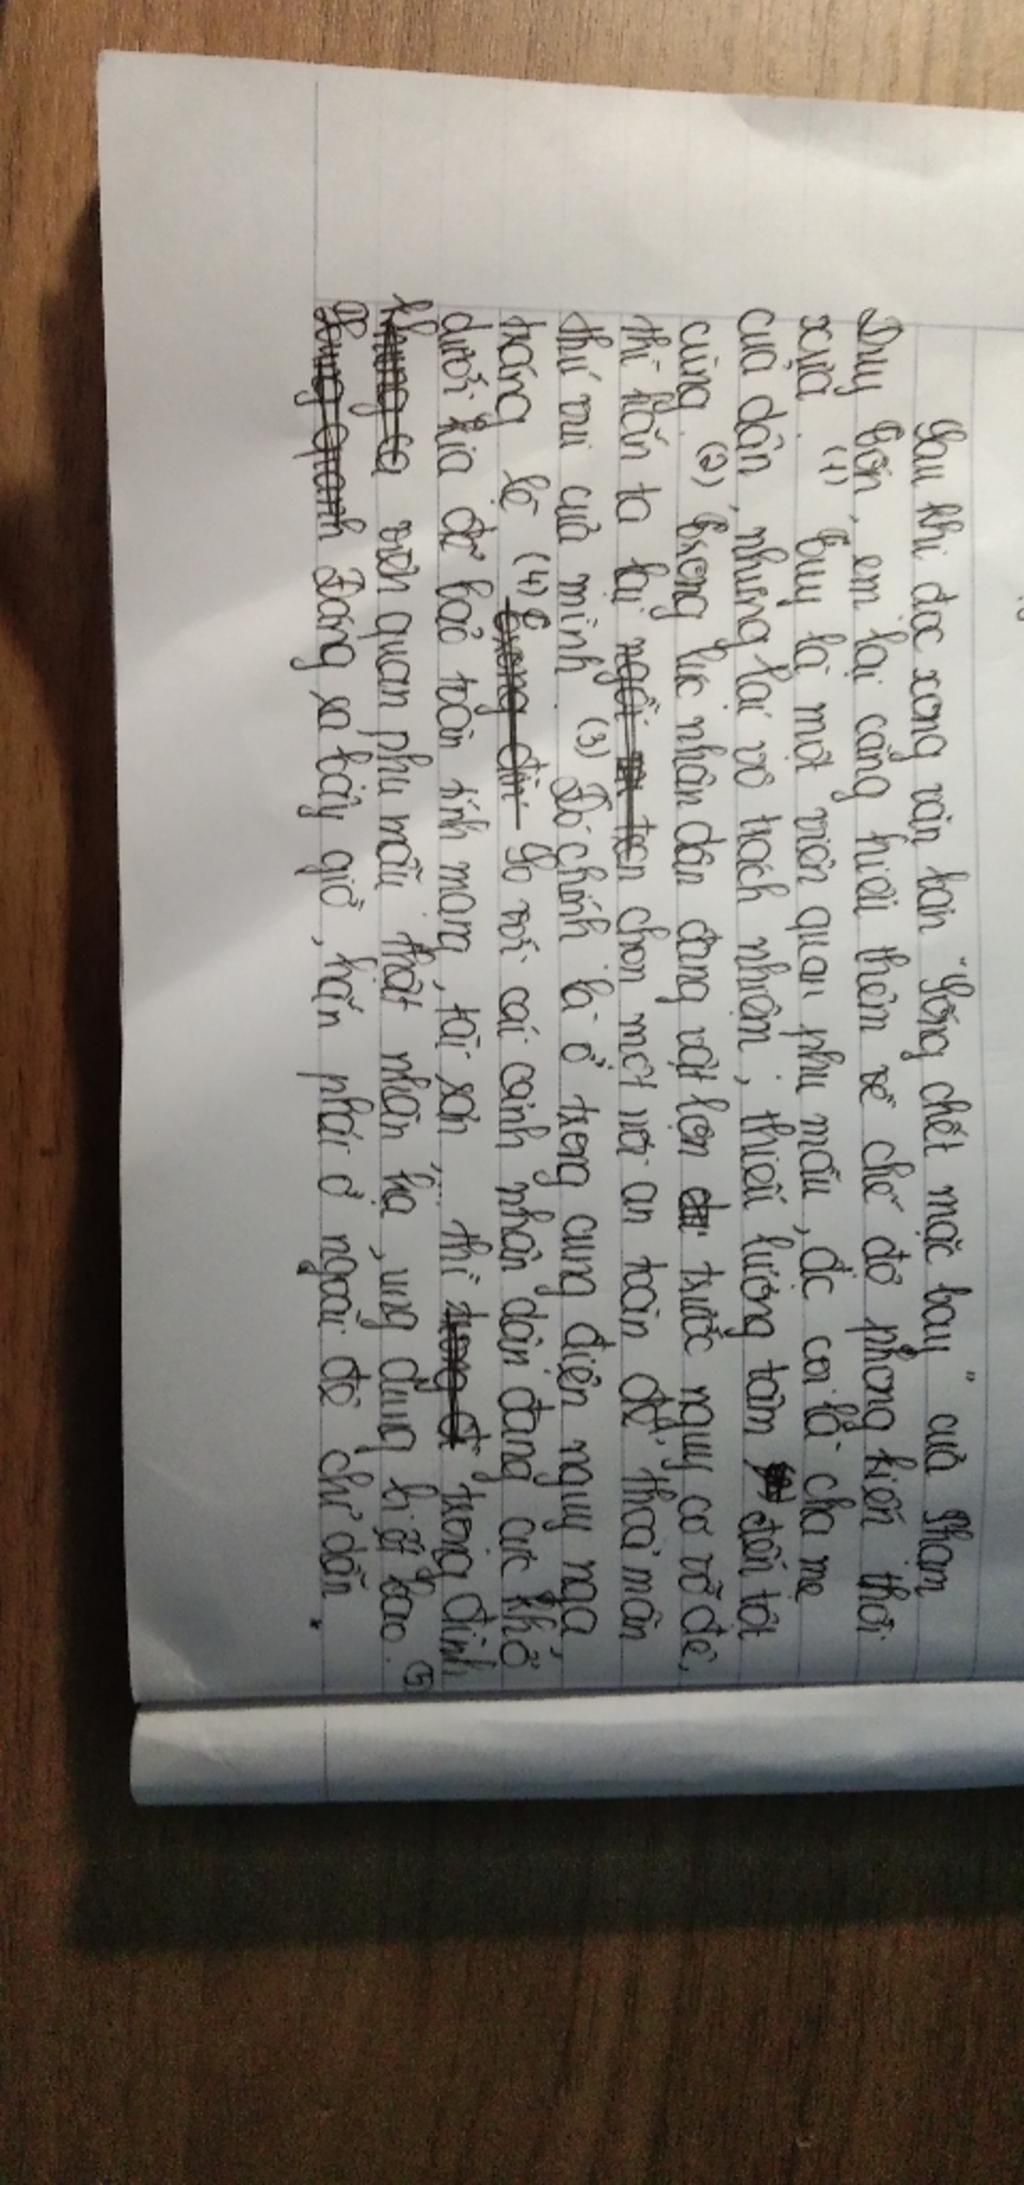 Sau khi đọc xong văn bản "Sống chết mặc bay" của Phạm
Duy Tốn, em lại càng hiểu thêm về chế độ phong kiến thời
xưa. (1) Tuy là một viên quan phụ mẫu, đc coi là cha mẹ
của dân, nhưng lại vô trách nhiệm, thiếu lương tâm đến tột
cùng. (2) Trong lúc nhân dân đang vật lộn trước nguy cơ vỡ đê,
thì hắn ta lại chọn một nơi an toàn để thoả mãn
thú vui của mình. (3) Đó chính là ở trong cung điện nguy nga,
tráng lệ (4) So với cái cảnh nhân dân đang cực khổ
dưới kia để bảo toàn tính mạng, tài sản,... thì trong đình
viên quan phụ mẫu thật nhàn hạ, ung dung biết bao. (5)
Đáng ra bây giờ, hắn phải ở ngoài đê chỉ dẫn